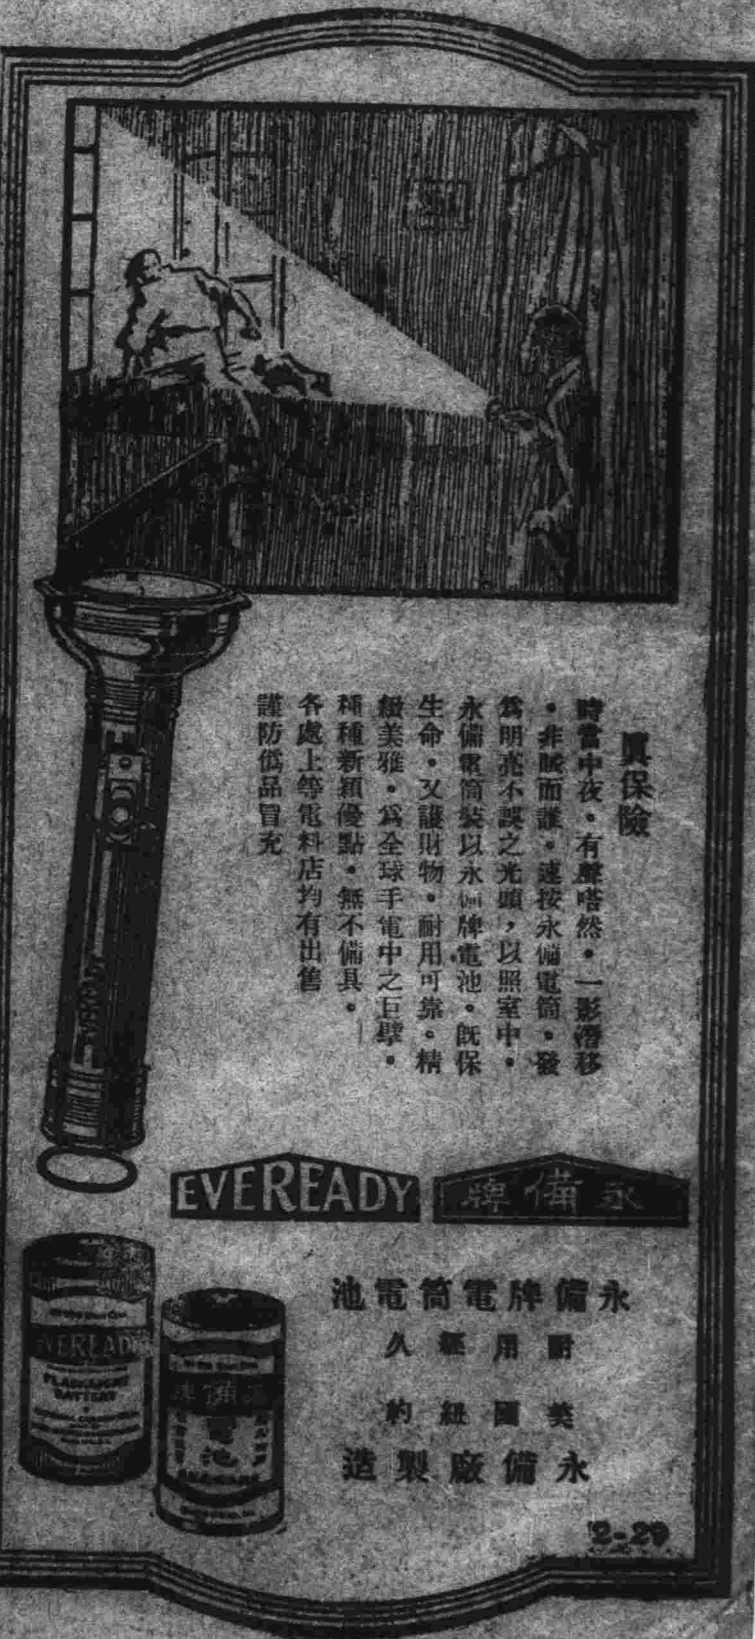 眞保險
時當中夜。有聲嗒然。一影潛移
。非賊而誰。速按永備電筒。發
爲明亮不誤之光頭，以照室中。
永備電筒裝以永備牌電池。旣保
生命。又護財物。耐用可靠。精
緻美雅。爲全球手電中之巨擘。
種種新穎優點。無不備具。
各處上等電料店均有出售
謹防僞品冒充
EVEREADY
永備牌
永備牌電筒電池
耐用經久
美國紐約
永備廠製造
EVEREADY
FLASHLIGHT
BATTERY
永備牌
電池
2-29